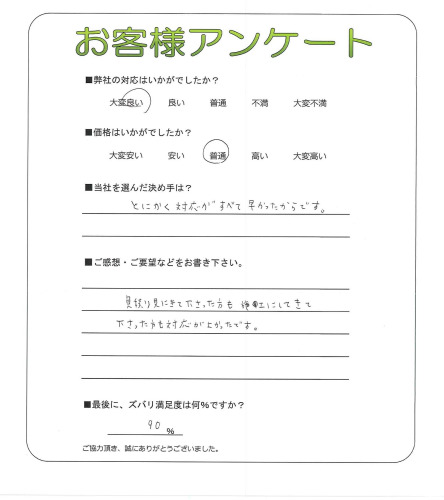 お客様アンケート
■弊社の対応はいかがでしたか?
大変良い 良い 普通 不満 大変不満
■価格はいかがでしたか?
大変安い 安い 普通 高い 大変高い
■当社を選んだ決め手は?
とにかく対応がすべて早かったからです。
■ご感想・ご要望などをお書き下さい。
見積り見にきて下さった方も 施工にしてきて
下さった方も対応が良かったです。
■最後に、ズバリ満足度は何%ですか?
90 %
ご協力頂き、誠にありがとうございました。